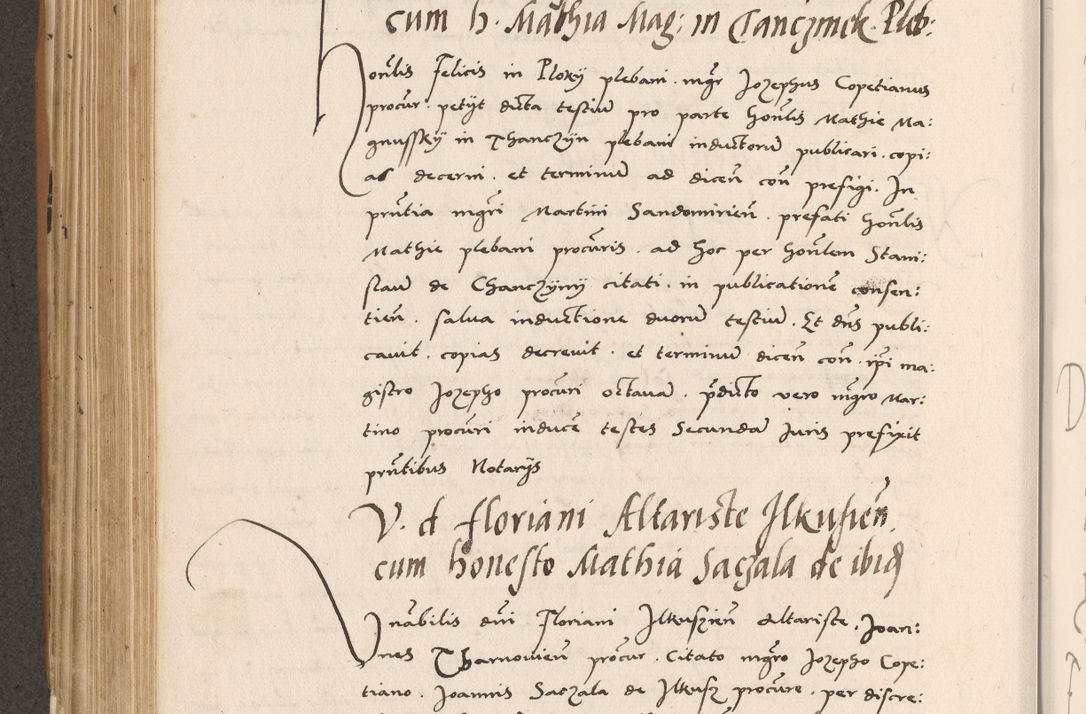 cum h. Mathia Mag: in Tanczinek. Pleb:
Honῆlis Felicis in Ploky plebani. mgr Jozephus Copetianus
procur. petijt dicta testiu pro parte honlis Mathie Ma:
gnussky in Thanczyn plebani inductoru publicari. copi:
as decerni. et terminu ad dicen con prefigi. In
pntia mgri Martini Sandomirien. prefati honlis
Mathie plebani procuris. ad hoc per honlem Stani:
slau de Chanczyny citati. in publicatione consen:
tien. salva inductione duoru testiu. Et dns publi:
cavit. copias decrevit. et terminu dicen con. ipi ma:
gistro Jozepho procuri octava. pdicto vero mgro Mar:
tino procuri induce testes Secunda Juris prefixit
pntibus Notarijs
V. d floriani Altariste Ilkusien.
cum honesto Mathia Saczala de ibiq
Vnabilis dni Floriani Ilkuszien altariste. Joan:
nes Tharnovien procur. Citato mgro Jozepho Cope:
tiano. Joannis Saczala de Ilkusz procure. per discre: